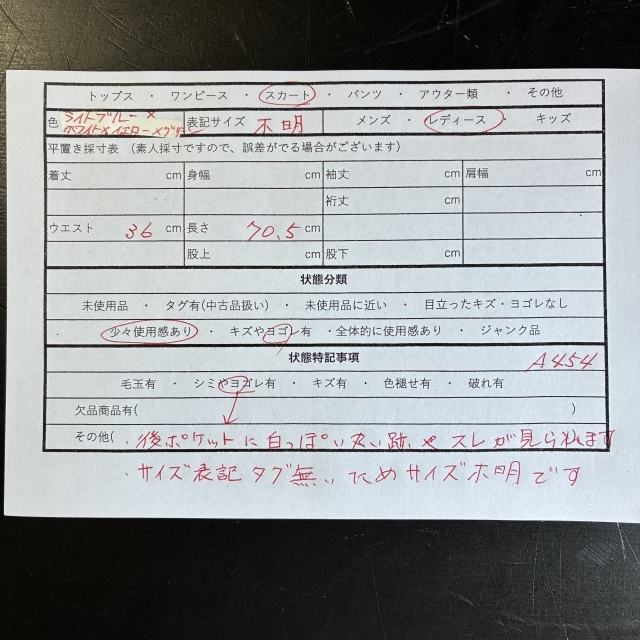 トップス ・ ワンピース ・ スカート ・ パンツ ・ アウター類 ・ その他
色 ライトブルー×ホワイト×イエロー× 表記サイズ 不明 メンズ ・ レディース ・ キッズ
平置き採寸表 （素人採寸ですので、誤差がでる場合がございます）
着丈 cm 身幅 cm 袖丈 cm 肩幅 cm
裄丈 cm
ウエスト 36 cm 長さ 70.5 cm
股上 cm 股下 cm
状態分類
未使用品 ・ タグ有(中古品扱い) ・ 未使用品に近い ・ 目立ったキズ・ヨゴレなし
少々使用感あり ・ キズやヨゴレ有 ・全体的に使用感あり ・ ジャンク品
状態特記事項 A454
毛玉有 ・ シミやヨゴレ有 ・ キズ有 ・ 色褪せ有 ・ 破れ有
欠品商品有( )
その他( ・後ポケットに白っぽい丸い跡やスレが見られます
・サイズ表記タグ無いためサイズ不明です